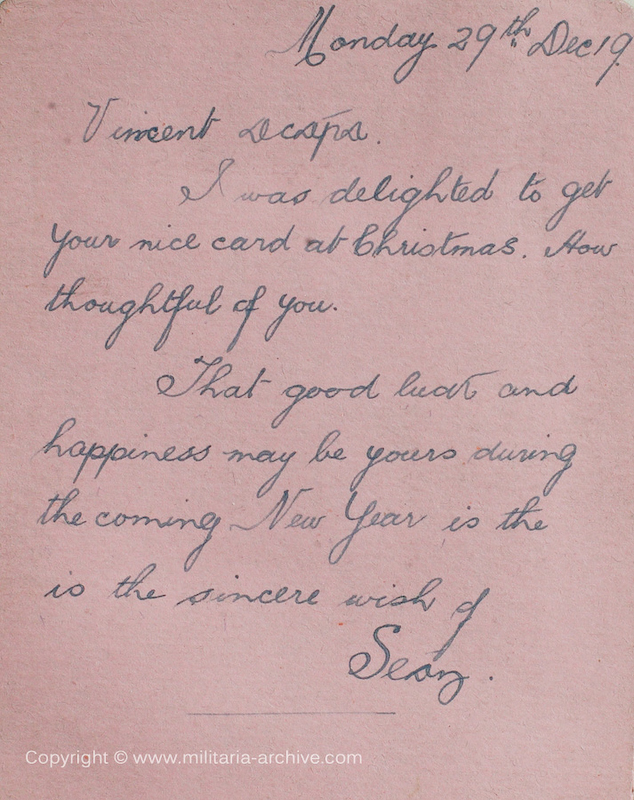 Monday 29th Dec 19
Vincent
I was delighted to get
your nice card at Christmas. How
thoughtful of you.
That good luck and
happiness may be yours during
the coming New Year is the
is the sincere wish of
Seán.
Copyright © www.militaria-archive.com